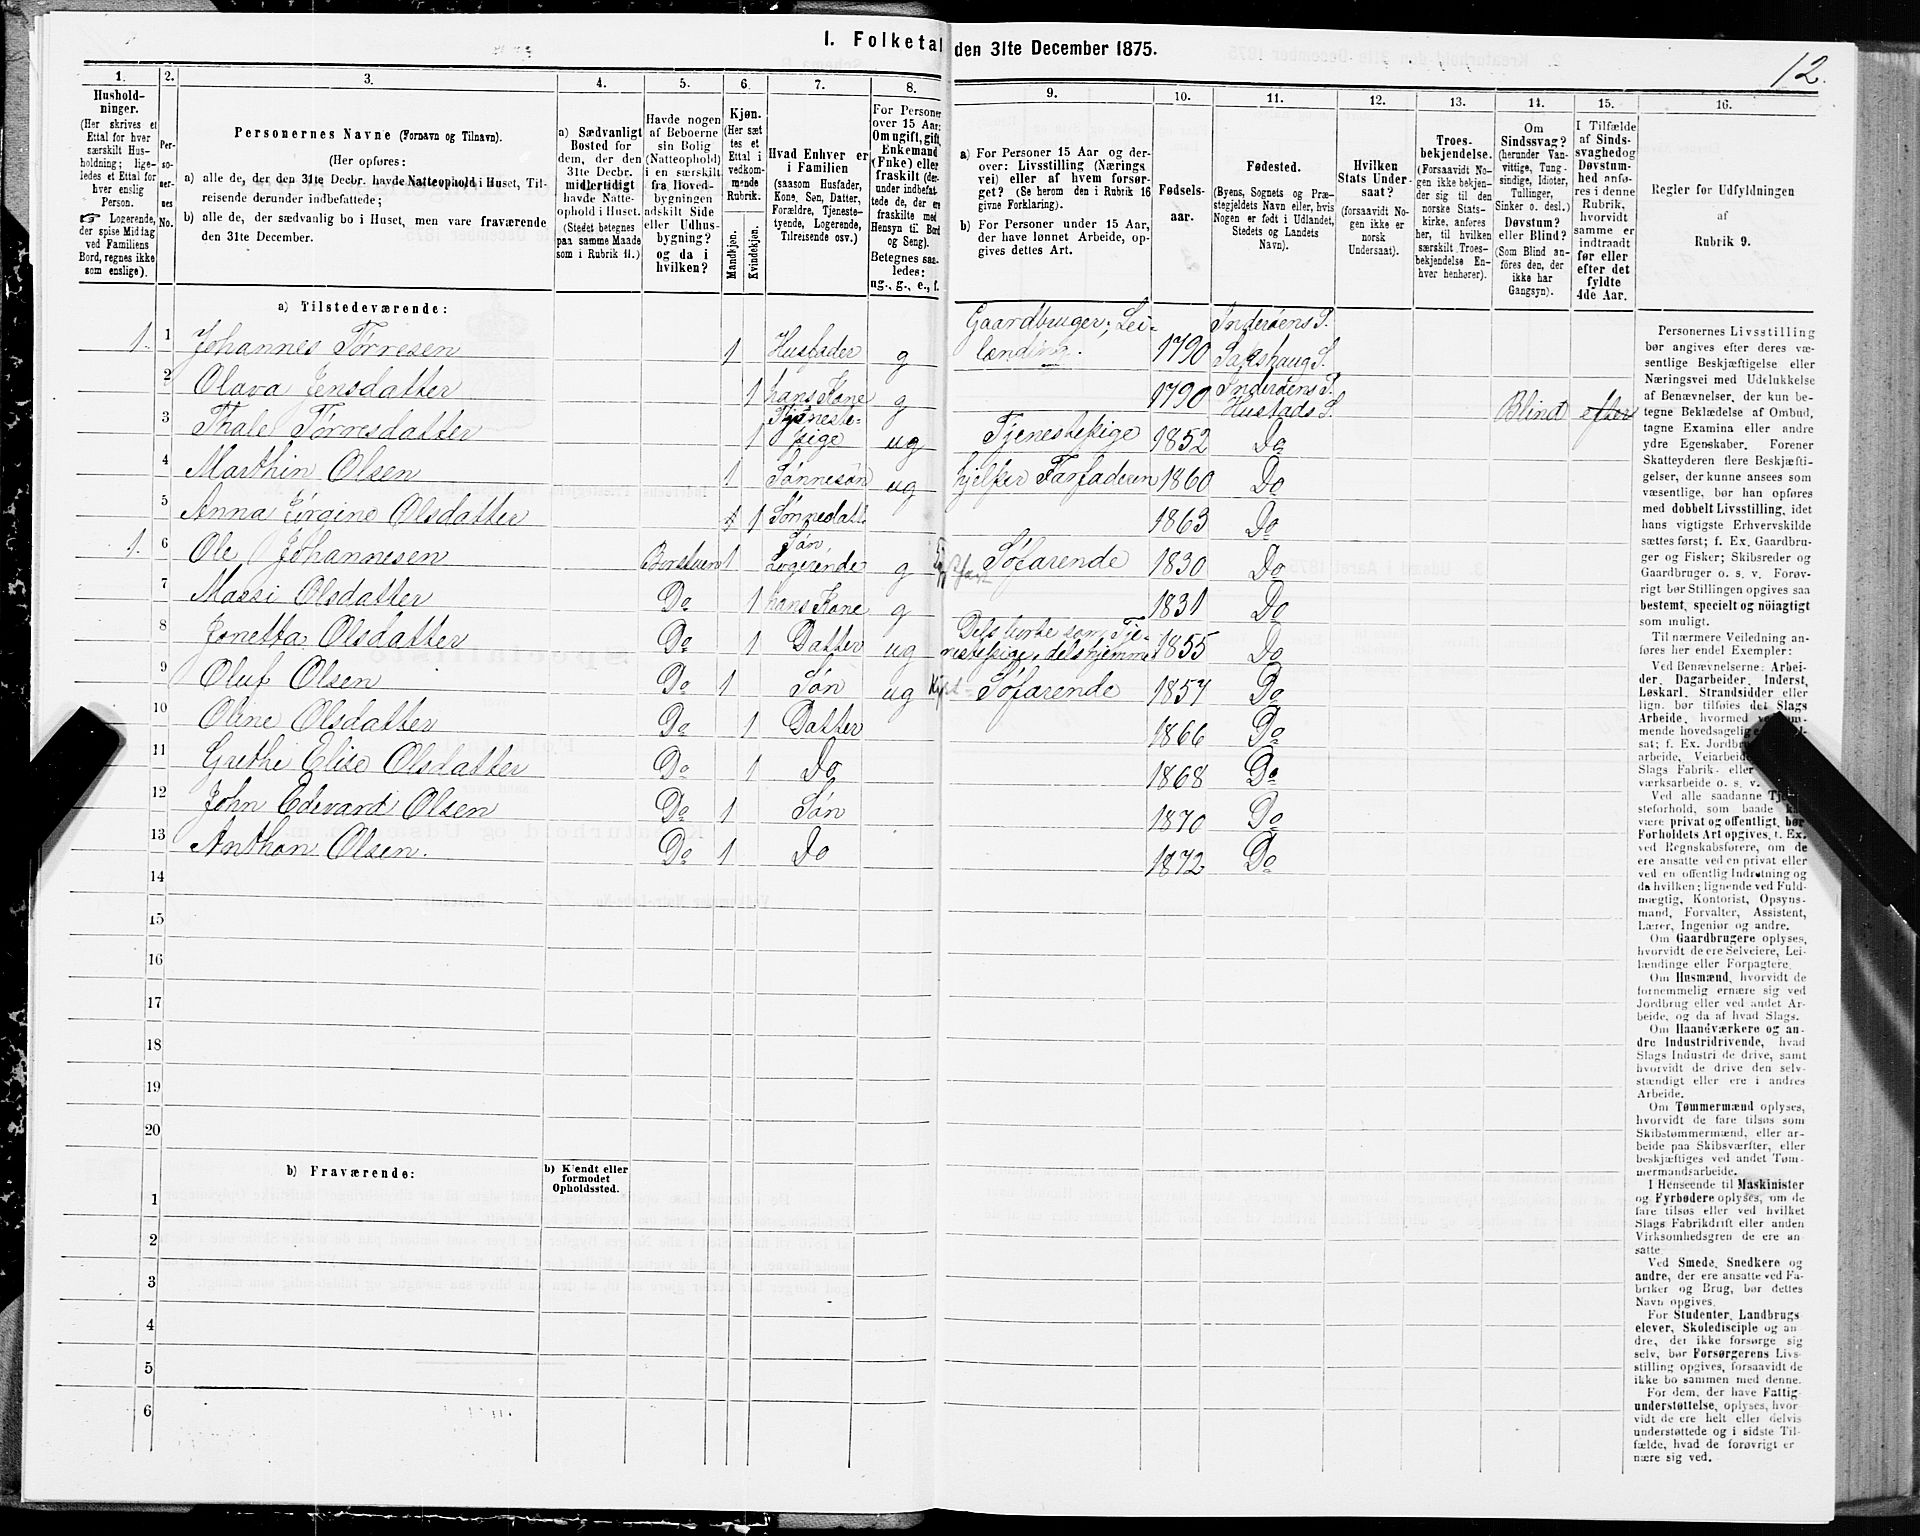 I. Folketal den 31te December 1875.
12.
1. 2. 3. 4. 5. 6. 7. 8. 9. 10. 11. 12. 13. 14. 15. 16.
Hushold-
ninger.
(Her skrives et
Ettal for hver
særskilt Hus-
holdning; lige-
ledes et Ettal for
hver enslig
Person.
☞ Logerende,
der spise Middag
ved Familiens
Bord, regnes ikke
som enslige).
Per-
so-
ner-
nes
No.
Personernes Navne (Fornavn og Tilnavn).
(Her opføres:
a) alle de, der den 31te Decbr. havde Natteophold i Huset, Til-
reisende derunder indbefattede;
b) alle de, der sædvanlig bo i Huset, men vare fraværende
den 31te December.
a) Sædvanligt
Bosted for
dem, der den
31te Decbr.
midlertidigt
havde Natte-
ophold i Huset.
(Stedet betegnes
paa samme Maade
som i Rubrik 11.)
Havde nogen
af Beboerne
sin Bolig
(Natteophold)
i en særskilt
fra Hoved-
bygningen
adskilt Side
eller Udhus-
bygning?
og da i
hvilken?
Kjøn.
(Her sæt
tes et
Ettal i
vedkom-
mende
Rubrik.
Mandkjøn.
Kvindekjøn.
Hvad Enhver er
i Familien
(saasom Husfader,
Kone, Søn, Datter,
Forældre, Tjeneste-
tyende, Logerende,
Tilreisende osv.)
For Personer
over 15 Aar:
Om ugift, gift,
Enkemand
(Enke) eller
fraskilt (der-
under indbefat-
tede de, der ere
fraskilte med
Hensyn til Bord
og Seng).
Betegnes saa-
ledes:
ug., g., e., f.
a) For Personer 15 Aar og der-
over: Livsstilling (Nærings
vei) eller af hvem forsør-
get? (Se herom den i Rubrik 16
givne Forklaring).
b) For Personer under 15 Aar,
der have lønnet Arbeide, op-
gives dettes Art.
Fødsels-
aar.
Fødested.
(Byens, Sognets og Præ-
stegjeldets Navn eller, hvis
Nogen er født i Udlandet,
Stedets og Landets
Navn).
Hvilken
Stats Under-
saat?
(forsaavidt No-
gen ikke er
norsk
Undersaat).
Troes-
bekjendelse.
(Forsaavidt No-
gen ikke bekjen-
der sig til den
norske Stats-
kirke, anføres
her, til hvilken
særskilt Troes-
bekjendelse En-
hver henhører).
Om
Sindssvag?
(herunder Van-
vittige, Tung-
sindige, Idioter,
Tullinger,
Sinker o. desl.)
Døvstum?
eller Blind?
(Som Blind an-
føres den, der
ikke har
Gangsyn).
I Tilfælde
af Sinds-
svaghed og
Døvstum-
hed anfø-
res i denne
Rubrik,
hvorvidt
samme er
indtraadt
før eller
efter det
fyldte
4de Aar.
Regler for Udfyldningen
af
Rubrik 9.
a) Tilstedeværende:
1. 1 Johannes Tørresen 1 Husfader g Gaardbruger, Lei-
lænding. 1790 Inderøens P.
Sakshaug S.
2 Olava Jensdatter 1 hans Kone g 1790 Inderøens P.
Hustads S. Blind efter
3 Thale Tørresdatter 1 Tjeneste-
pige ug Tjenestepige 1852 Do
4 Marthin Olsen 1 Sønnesøn ug hjelper Farfaderen 1860 Do
5 Anna Jørgine Olsdatter 1 Sønnedatt 1863 Do
1. 6 Ole Johannesen Borstuen 1 Søn,
Logerende g Søfarende 1830 Do
7 Massi Olsdatter Do 1 hans Kone g 1831 Do
8 Jonetta Olsdatter Do 1 Datter ug Dels borte som Tje-
nestepige, dels hjemme 1855 Do
9 Oluf Olsen Do 1 Søn ug Søfarende 1857 Do
10 Oline Olsdatter Do 1 Datter 1866 Do
11 Grethe Elise Olsdatter Do 1 Do 1868 Do
12 John Edevard Olsen Do 1 Søn 1870 Do
13 Anthon Olsen. Do 1 Do 1872 Do
14
15
16
17
18
19
20
b) Fraværende:
b) Kjendt eller
formodet
Opholdssted.
1
2
3
4
5
6
Personernes Livsstilling
bør angives efter deres væ-
sentlige Beskjæftigelse eller
Næringsvei med Udelukkelse
af Benævnelser, der kun be-
tegne Beklædelse af Ombud,
tagne Examina eller andre
ydre Egenskaber. Forener
Skatteyderen flere Beskjæfti-
gelser, der kunne ansees som
væsentlige, bør han opføres
med dobbelt Livsstilling, idet
hans vigtigste Erhvervskilde
sættes først; f. Ex. Gaardbru-
ger og Fisker; Skibsreder og
Gaardbruger o. s. v. Forøv-
rigt bør Stillingen opgives saa
bestemt, specielt og nöiagtigt
som muligt.
Til nærmere Veiledning an-
føres her endel Exempler:
Ved Benævnelserne: Arbei-
der, Dagarbeider, Inderst,
Løskarl, Strandsidder eller
lign. bør tilføies det Slags
Arbeide, hvormed
mende hovedsagelig
sat; f. Ex. Jordbru
arbeide, Veiarbeide
Slags Fabrik- eller
værksarbeide o. s. v.
Ved alle saadanne Tje
steforhold, som baade
være privat og offentlig, bør
Forholdets Art opgives, f. Ex.
ved Regnskabsførere, om de
ere ansatte ved en privat eller
ved en offentlig Indretning og
da hvilken; lignende ved Fuld-
mægtig, Kontorist, Opsyns-
mand, Forvalter, Assistent,
Lærer, Ingeniør og andre.
Om Gaardbrugere oplyses,
hvorvidt de ere Selveiere, Lei-
lændinge eller Forpagtere.
Om Husmænd, hvorvidt de
fornemmelig ernære sig ved
Jordbrug eller ved andet Ar-
beide, og da af hvad Slags.
Om Haandværkere og an-
dre Industridrivende, hvad
Slags Industri de drive, samt
hvorvidt de drive den selv-
stændigt eller ere i andres
Arbeide.
Om Tømmermænd oplyses,
hvorvidt de fare tilsøs som
Skibstømmermænd, eller ar-
beide paa Skibsværfter, eller
beskjæftiges ved andet Tøm-
mermandsarbeide.
I Henseende til Maskinister
og Fyrbødere oplyses, om de
fare tilsøs eller ved hvilket
Slags Fabrikdrift eller anden
Virksomhedsgren de ere an-
satte
Ved Smede, Snedkere og
andre, der ere ansatte ved Fa-
briker og Brug, bør dettes
Navn opgives.
For Studenter, Landbrugs
elever, Skoledisciple og an-
dre, der ikke forsørge sig
selv, bør Forsørgerens Livs-
stilling opgives, forsaavidt de
ikke bo sammen med denne.
For dem, der have Fattig-
understøttelse, oplyses, hvor-
vidt de ere helt eller delvis
understøttede og i sidste Til-
fælde, hvad de forøvrigt er
nære sig ved.